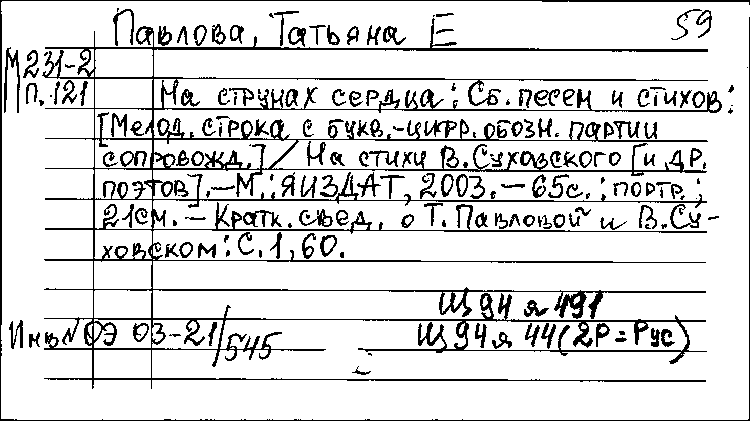 Павлова, Татьяна Е 59
М 231-2
П. 121 На струнах сердца: Сб. песен и стихов:
[Мелод. строка с букв.-цифр. обозн. партии
сопровожд.] / На стихи В.Суховского [и др.
поэтов]. — М.: ЯИЗДАТ, 2003. — 65с.: портр.;
21см. — Кратк. свед. о Т. Павловой и В.Су-
ховском: С.1,60.
Щ94 я 491
Инв№ОЭ 03-21/545 Щ94я 44(2Р=Рус)